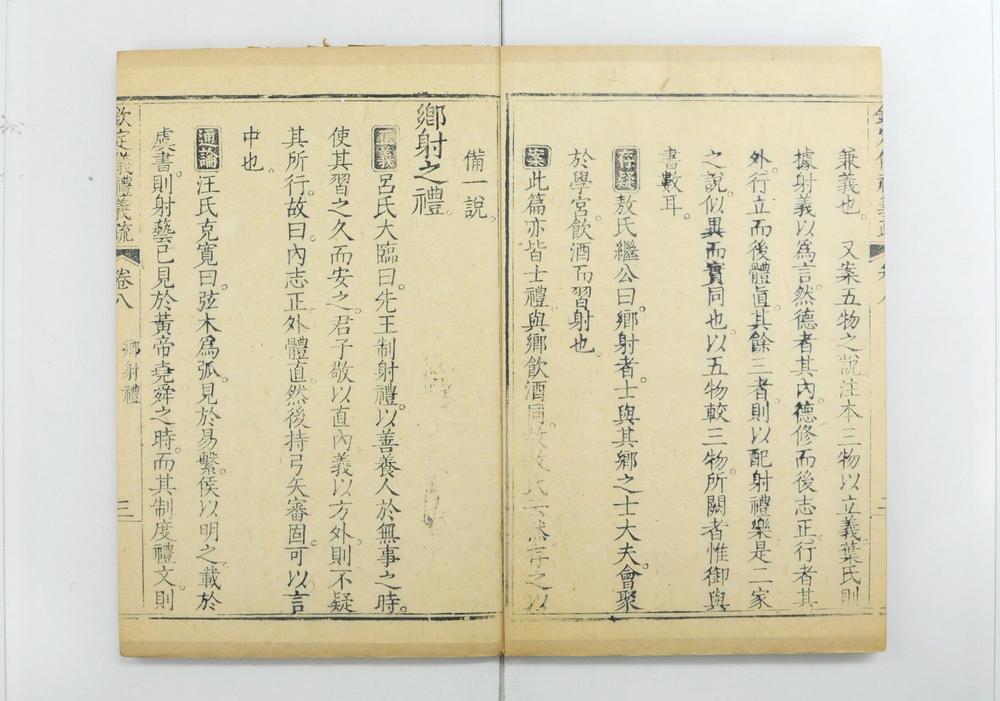 兼義也。　又案五物之說注本三物以立義葉氏則
據射義以為言。然德者其內。德修而後志正。行者其
外。行立而後體直。其餘三者。則以配射禮樂。是二家
之說。似異而實同也。以五物較三物。所闕者惟御與
書數耳。
存疑敖氏繼公曰。鄉射者。士與其鄉之士大夫會聚
於學宮飲酒而習射也。
案此篇亦皆士禮。與鄉飲酒同。故敖氏云然存之以
備一說。
鄉射之禮。
正義呂氏大臨曰。先王制射禮。以善養人於無事之時。
使其習之久而安之。君子敬以直內。義以方外。則不疑
其所行。故曰內志正。外體直。然後持弓矢審固。可以言
中也。
通論汪氏克寬曰。弦木爲弧。見於易繫。侯以明之。載於
虞書。則射藝已見於黃帝堯舜之時。而其制度禮文。則
欽定儀禮義疏　卷八　鄉射禮　三